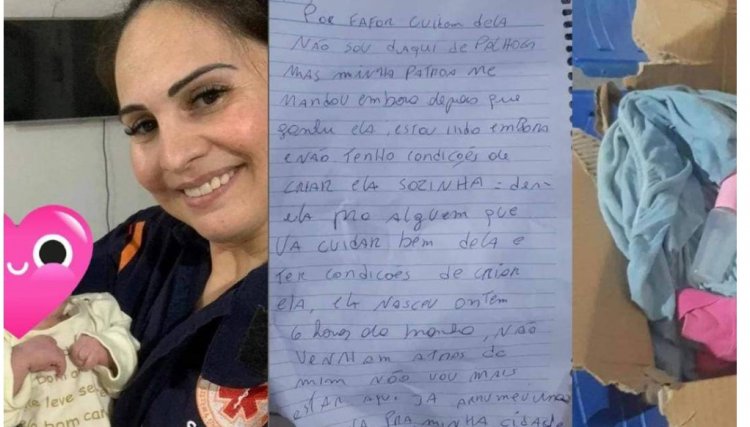 POR FAFOR CUIDAM dELA
NÃO SOU dAQUI de PALHOÇA
MAS MINHA PATROA ME
MANDOU emboRA depois que
ganhei elA, estou indo emboRA
e NÃO TENHO CONDIÇÕES de
CRIAR elA SOZINHA = dem
elA PRO Alguem que
VA CUIDAR bem delA e
TER CONDIÇÕES de CRIAR
ElA, ElA NASCEU ONTEM
6 horas da manhã, NÃO
VENHAM ATRAS de
mim NÃO VOU MAIS
estAR Aqui JA ARRUMEI UMA
PRA MINHA CIDADE
leve se
bom car